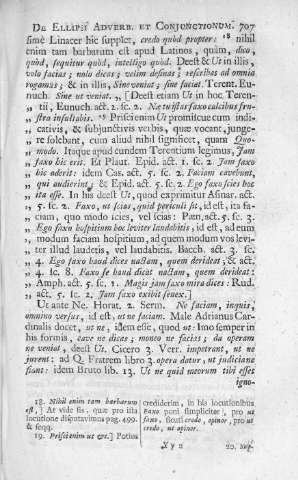 DE ELLIPSI ADVERB. ET CONJUNCTIONUM. 707
simè Linacer hic supplet, credo quòd propter: 18 nihil
enim tam barbarum est apud Latinos, quàm, dico,
quòd, sequitur quòd, intelligo quòd. Deest & Ut in illis,
volo facias; nolo dicas; velim desinas; rescribas ad omnia
rogamus; & in illis, Sine veniat; sine faciat. Terent. Eu-
nuch. Sine ut veniat. „ [Deest etiam Ut in hoc Teren-
„ tii, Eunuch. act. 2. sc. 2. Næ tu istas faxo calcibus frus-
„ stra insultabis. 19 Priscienim Ut promiscue cum indi-
„ cativis, & subjunctivis verbis, quæ vocant, junge-
„ re solebant, cum aliud nihil significet, quam Quo-
„ modo. Itaque apud eundem Terentium legimus, Jam
„ faxo hic erit. Et Plaut. Epid. act. 1. sc. 2. Jam faxo
„ hic aderit: idem Cas. act. 5. sc. 2. Faciam cavebunt,
„ qui audierint; & Epid. act. 5. sc. 2. Ego faxo scies hoc
„ ita esse. In his deest Ut, quod exprimitur Asinar. act.
„ 5. sc. 2. Faxo, ut scias, quid pericli sit, id est, ita fa-
„ ciam, quo modo scies, vel scias: Pœn. act. 5. sc. 3.
„ Ego faxo hospitium hoc leviter laudabitis, id est, ad eum
„ modum faciam hospitium, ad quem modum vos levi-
„ ter illud laudetis, vel laudabitis. Bacch. act. 3. sc.
„ 4. Ego faxo haud dicas nactam, quem derideat; & act.
„ 4. sc. 8. Faxo se haud dicat nactam, quem derideat:
„ Amph. act. 5. sc. 1. Magis jam faxo mira dices: Rud.
„ act. 5. sc. 2. Jam faxo exibit senex.]
Ut ante Ne. Horat. 2. Serm. Ne faciam, inquis,
omnino versus, id est, ut ne faciam. Male Adrianus Car-
dinalis docet, ut ne, idem esse, quod ut: Imo semper in
his formis, cave ne dicas; moneo ne facias; da operam
ne venias, deest Ut. Cicero 3. Verr. impetrant, ut ne
jurent: ad Q. Fratrem libro 3. opera datur, ut judicia ne
fiant: idem Bruto lib. 13. Ut ne quid meorum tibi esset
igno-
18. Nihil enim tam barbarum
est,] At vide sis. quæ pro illa
locutione disputavimus pag. 499.
& seqq.
19. Priscienim ut &c.] Potius
crediderim, in his locutionibus
Faxo poni simpliciter, pro ut
faxo, sicuti credo, opinor, pro ut
credo, ut opinor.
Y y 2
20. Sup.